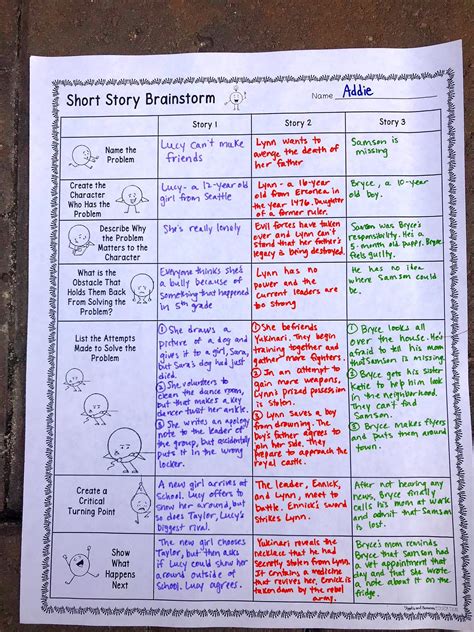 Short Story Brainstorm
Name Addie
Story 1
Story 2
Story 3
Name the
Problem
Lucy can't make
friends
Lynn wants to
avenge the death of
her father
Samson is
missing
Create the
Character
Who Has the
Problem
Lucy- a 12-year old
girl from Seattle
Lynn - a 16-year
old from Erconea in
the year 1476. Daughter
of a former ruler.
Bryce, a 10-year
old boy.
Describe Why
the Problem
Matters to the
Character
She's really lonely
Evil forces have taken
over and Lynn can't
stand that her father's
legacy is being destroyed.
Samson was Bryce's
responsibility. He's a
5-month old puppy. Bryce
feels guilty.
What is the
Obstacle That
Holds Them Back
From Solving the
Problem?
Everyone thinks she's
a bully because of
something that happened
in 5th grade
Lynn has no
power and the
current leaders are
too strong
He has no idea
where Samson
could be.
List the Attempts
Made to Solve the
Problem
① She draws a
picture of a dog and
gives it to a girl, Sara,
but Sara's dog had just
died.
② She volunteers to
clean the dance room,
but that make a key
dancer twist her ankle.
③ She writes an apology
note to the leader of
the group, but accidentally
puts it in the wrong
locker.
① She befriends
Yukinari. They begin
training together and
gather more fighters.
② In an attempt to
gain more weapons,
Lynn's prized possession
is stolen.
③ Lynn saves a boy
from drowning. The
boy's father agrees to
join her side. They
prepare to approach the
royal castle.
① Bryce looks all
over the house. He's
afraid to tell his mom
that Samson is missing.
② Bryce gets his sister
Katie to help him look
in the neighborhood.
They can't find
Samson.
③ Bryce makes flyers
and puts them around
town.
Create a
Critical
Turning Point
A new girl arrives at
School. Lucy offers to
show her around, but
so does Taylor, Lucy's
biggest rival.
The leader, Enick,
and Lynn, meet to
battle. Enick's sword
strikes Lynn.
After not hearing any
news, Bryce finally
calls his mom at work
and admit that Samson
is lost.
Show
What
Happens
Next
The new girl chooses
Taylor, but then asks
if Lucy could show her
around outside of
School. Lucy agrees.
Yukinari reveals the
necklace that he had
secretly stolen from Lynn.
It contains a medicine
that revives her. Enick is
taken down by the rebel
army.
Bryce's mom reminds
Bryce that Samson had
a vet appointment that
day and that She wrote
a note about it on the
fridge.